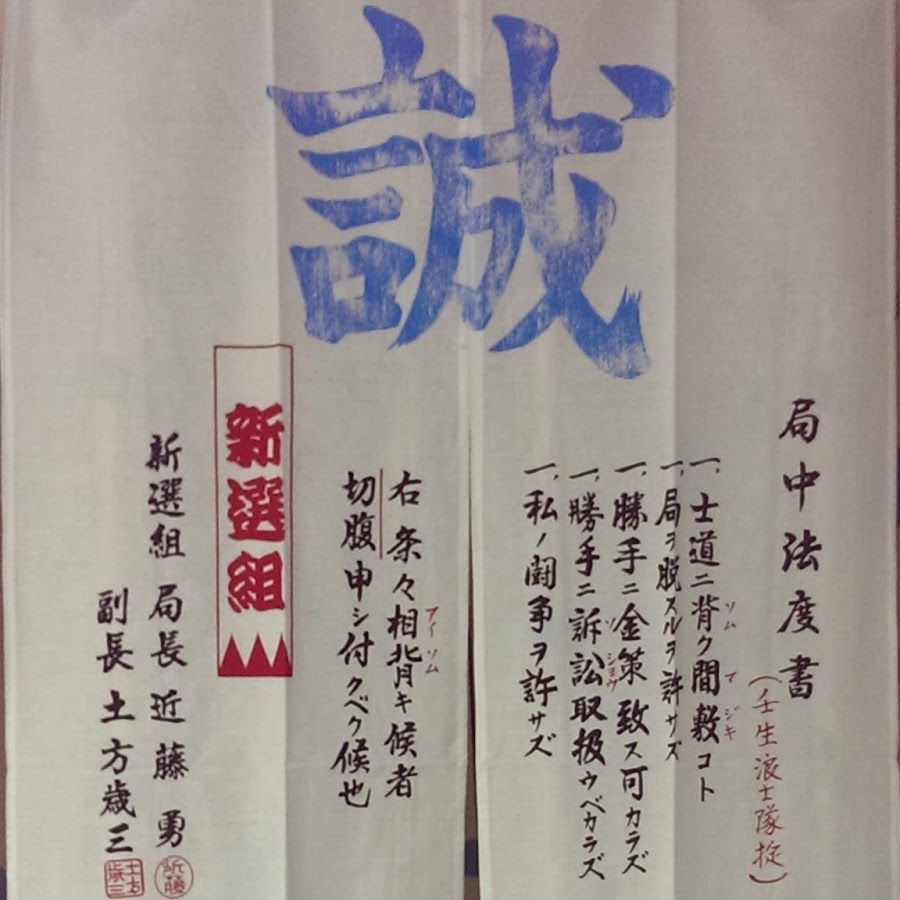 誠
局中法度書
(壬生浪士隊掟)
一、士道ニ背ク間敷コト
ソム
マジキ
一、局ヲ脱スルヲ許サズ
一、勝手ニ金策致ス可カラズ
一、勝手ニ訴訟取扱ウベカラズ
ソショウ
一、私ノ闘争ヲ許サズ
右条々相背キ候者
アイソム
切腹申シ付クベク候也
新選組
新選組局長近藤勇
近藤
副長土方歳三
土方歳三